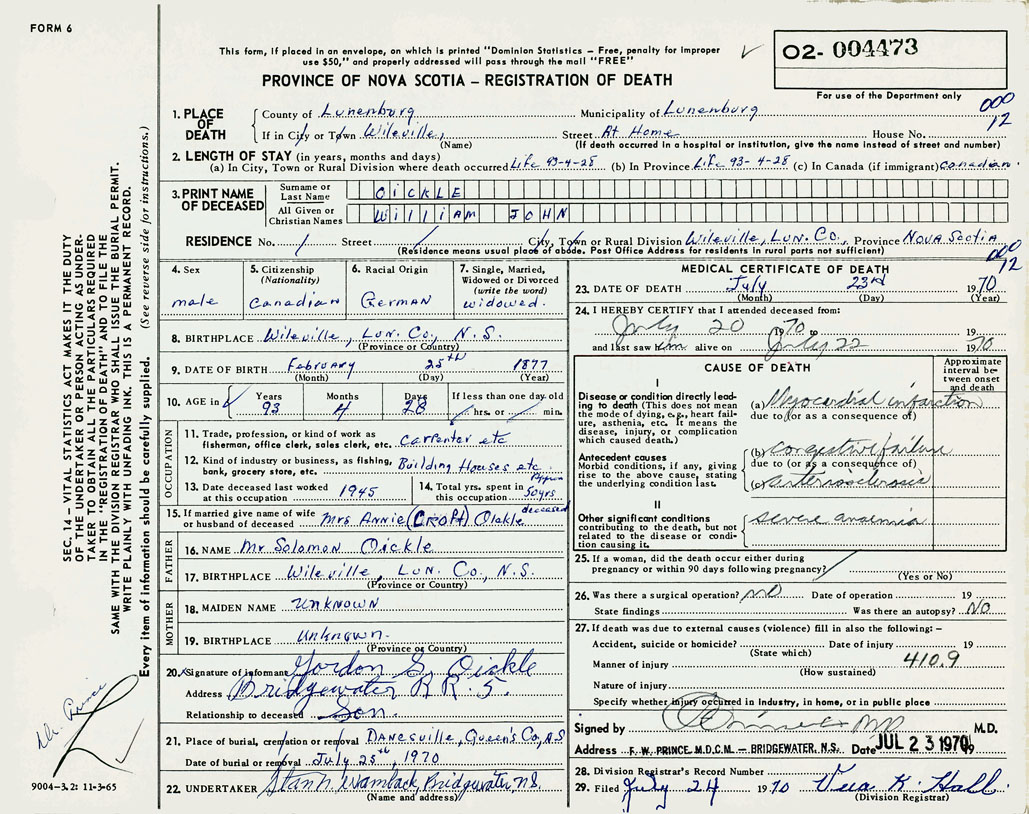 FORM 6
This form, if placed in an envelope, on which is printed "Dominion Statistics – Free, penalty for improper
use $50," and properly addressed will pass through the mail "FREE"
PROVINCE OF NOVA SCOTIA – REGISTRATION OF DEATH
02- 004473
For use of the Department only
000
12
1. PLACE OF DEATH County of Lunenburg Municipality of Lunenburg
If in City or Town Wileville, Street At Home House No.
(Name) (If death occurred in a hospital or institution, give the name instead of street and number)
2. LENGTH OF STAY (in years, months and days)
(a) In City, Town or Rural Division where death occurred Life 93-4-28 (b) In Province Life 93-4-28 (c) In Canada (if immigrant) Canadian.
3. PRINT NAME OF DECEASED Surname or Last Name OICKLE
All Given or Christian Names WILLIAM JOHN
RESIDENCE No. / Street / City, Town or Rural Division Wileville, Lun. Co., Province Nova Scotia
(Residence means usual place of abode. Post Office Address for residents in rural parts not sufficient)
000
12
4. Sex male
5. Citizenship (Nationality) Canadian
6. Racial Origin German
7. Single, Married, Widowed or Divorced (write the word) widowed.
8. BIRTHPLACE Wileville, Lun. Co., N.S.
(Province or Country)
9. DATE OF BIRTH February 25th 1877
(Month) (Day) (Year)
10. AGE in Years 93 Months 4 Days 28 If less than one day old hrs. or min.
OCCUPATION
11. Trade, profession, or kind of work as fisherman, office clerk, sales clerk, etc. Carpenter etc
12. Kind of industry or business, as fishing, bank, grocery store, etc. Building Houses etc
13. Date deceased last worked at this occupation 1945
14. Total yrs. spent in this occupation 50yrs
15. If married give name of wife or husband of deceased Mrs Annie (Croft) Oickle deceased
FATHER
16. NAME Mr Solomon Oickle
17. BIRTHPLACE Wileville, Lun. Co., N.S.
(Province or Country)
MOTHER
18. MAIDEN NAME Unknown
19. BIRTHPLACE Unknown.
(Province or Country)
20. Signature of informant Gordon S. Oickle
Address Bridgewater RR 5.
Relationship to deceased Son.
21. Place of burial, cremation or removal Danesville, Queen's Co,
Date of burial or removal July 25th, 1970
22. UNDERTAKER Wamback, Bridgewater, NS.
(Name and address)
MEDICAL CERTIFICATE OF DEATH
23. DATE OF DEATH July 23rd 1970
(Month) (Day) (Year)
24. I HEREBY CERTIFY that I attended deceased from:
July 20 1970 to 19
and last saw him alive on July 22 1970
CAUSE OF DEATH
Approximate interval between onset and death
I
Disease or condition directly leading to death (This does not mean the mode of dying, e.g., heart failure, asthenia, etc. It means the disease, injury, or complication which caused death.)
(a) Myocardial infarction
due to (or as a consequence of)
Antecedent causes
Morbid conditions, if any, giving rise to the above cause, stating the underlying condition last.
(b) congestive failure
due to (or as a consequence of)
(c) arteriosclerosis
II
Other significant conditions contributing to the death, but not related to the disease or condition causing it.
severe anaemia
25. If a woman, did the death occur either during pregnancy or within 90 days following pregnancy?
(Yes or No)
26. Was there a surgical operation? NO Date of operation 19
State findings Was there an autopsy? NO
27. If death was due to external causes (violence) fill in also the following: –
Accident, suicide or homicide? Date of injury 19
(State which)
Manner of injury 410.9
(How sustained)
Nature of injury
Specify whether injury occurred in industry, in home, or in public place
Signed by M.D.
Address F. W. PRINCE M.D.C.M. – BRIDGEWATER, N.S. Date JUL 23 1970
28. Division Registrar's Record Number
29. Filed July 24 1970 K. Hall
(Division Registrar)
SEC. 14 – VITAL STATISTICS ACT MAKES IT THE DUTY
OF THE UNDERTAKER OR PERSON ACTING AS UNDER-
TAKER TO OBTAIN ALL THE PARTICULARS REQUIRED
IN THE "REGISTRATION OF DEATH" AND TO FILE THE
SAME WITH THE DIVISION REGISTRAR WHO SHALL ISSUE THE BURIAL PERMIT.
WRITE PLAINLY WITH UNFADING INK. THIS IS A PERMANENT RECORD.
Every item of information should be carefully supplied. (See reverse side for instructions.)
Dr. Prince
9004-3.2: 11-3-65